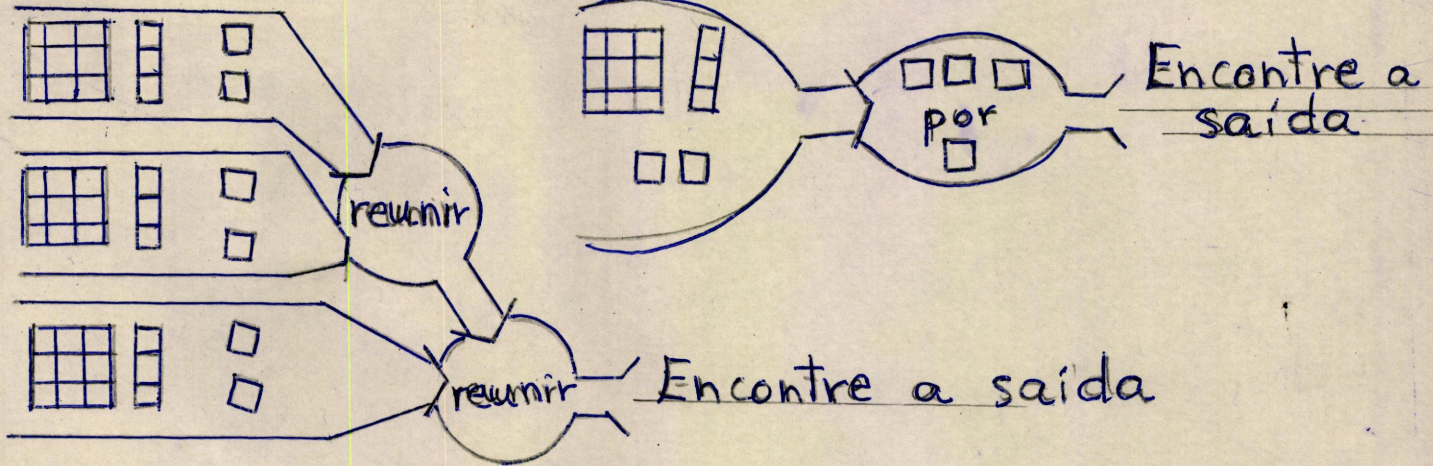 reunir
reunir
Encontre a saída
por
Encontre a
saída